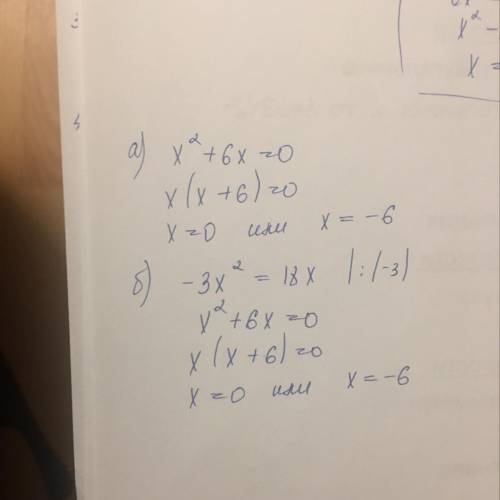 а) x² + 6x = 0
x(x + 6) = 0
x = 0 или x = -6
б) -3x² = 18x |:(-3)
x² + 6x = 0
x(x + 6) = 0
x = 0 или x = -6
x² -
x =